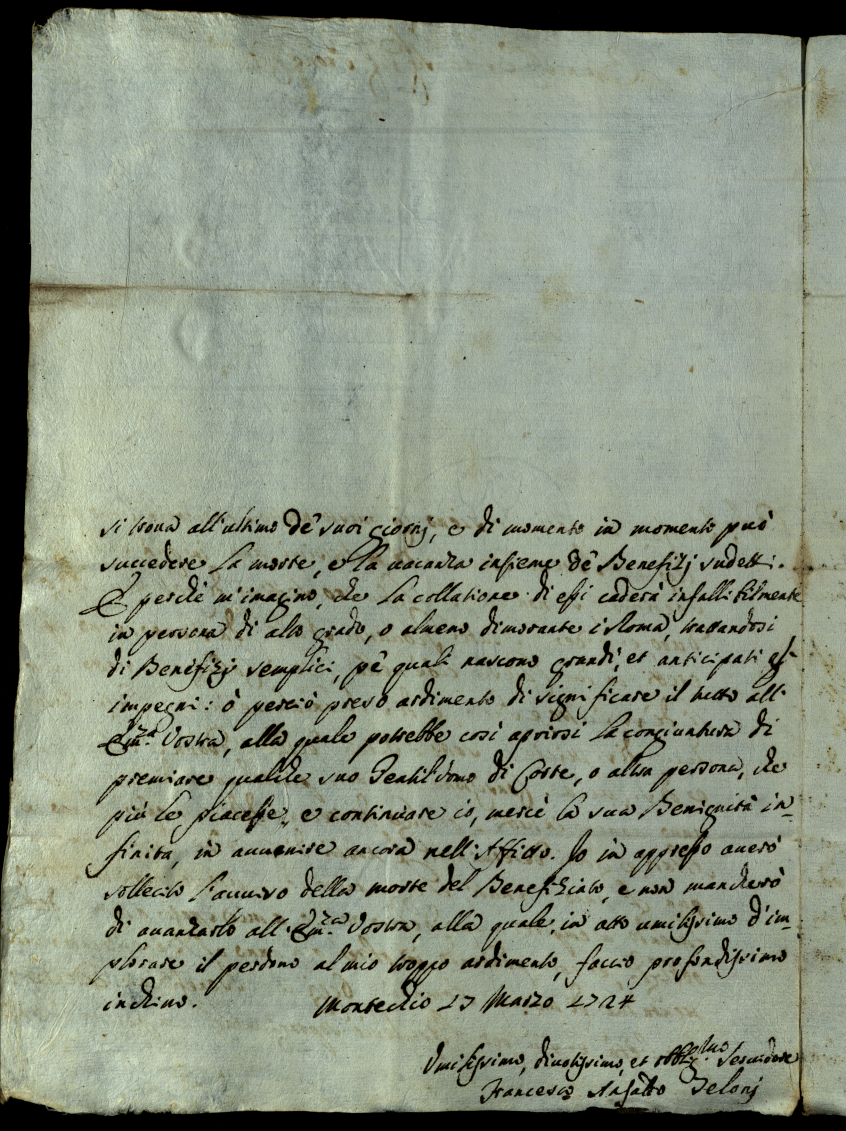 si troua all'ultimo de' suoi giorni, e di momento in momento può
succedere la morte, e la uacanza insieme de' Benefizij sudetti.
E perche m'imagino, che la collatione di essi caderà infallibilmente
in persona di alto grado, o almeno dimorante i Roma, trattandosi
di Benefizij semplici, pe' quali nascono grandi, et anticipati gl'
impegni: ò perciò preso ardimento di significare il tutto all'
Em.za Vostra, alla quale potrebbe così aprirsi la congiuntura di
premiare qualche suo Gentil'vomo di Corte, o altra persona, che
più le piacesse, e continuare io, mercè la sua Benignità in-
finita, in auuenire ancora nell'Affitto. Io in appresso auerò
sollecito l'auuiso della morte del Benefiziato, e non mancherò
di auanzarlo all'Em.za Vostra, alla quale, in atto umilissimo d'im-
plorare il perdono al mio troppo ardimento, faccio profondissimo
inchino. Montechio 27 Marzo 1724
Vmilissimo, diuotissimo, et obblig.mo Seruidore
Francesco Geloni